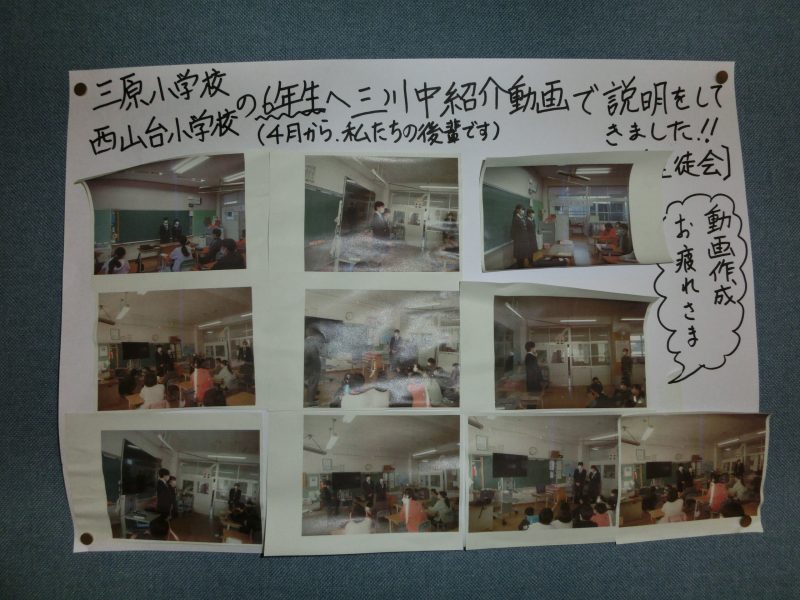 三原小学校
西山台小学校の6年生へ三川中紹介動画で説明をして
(4月から、私たちの後輩です)
きました!!
徒会]
動画作成
お疲れさま